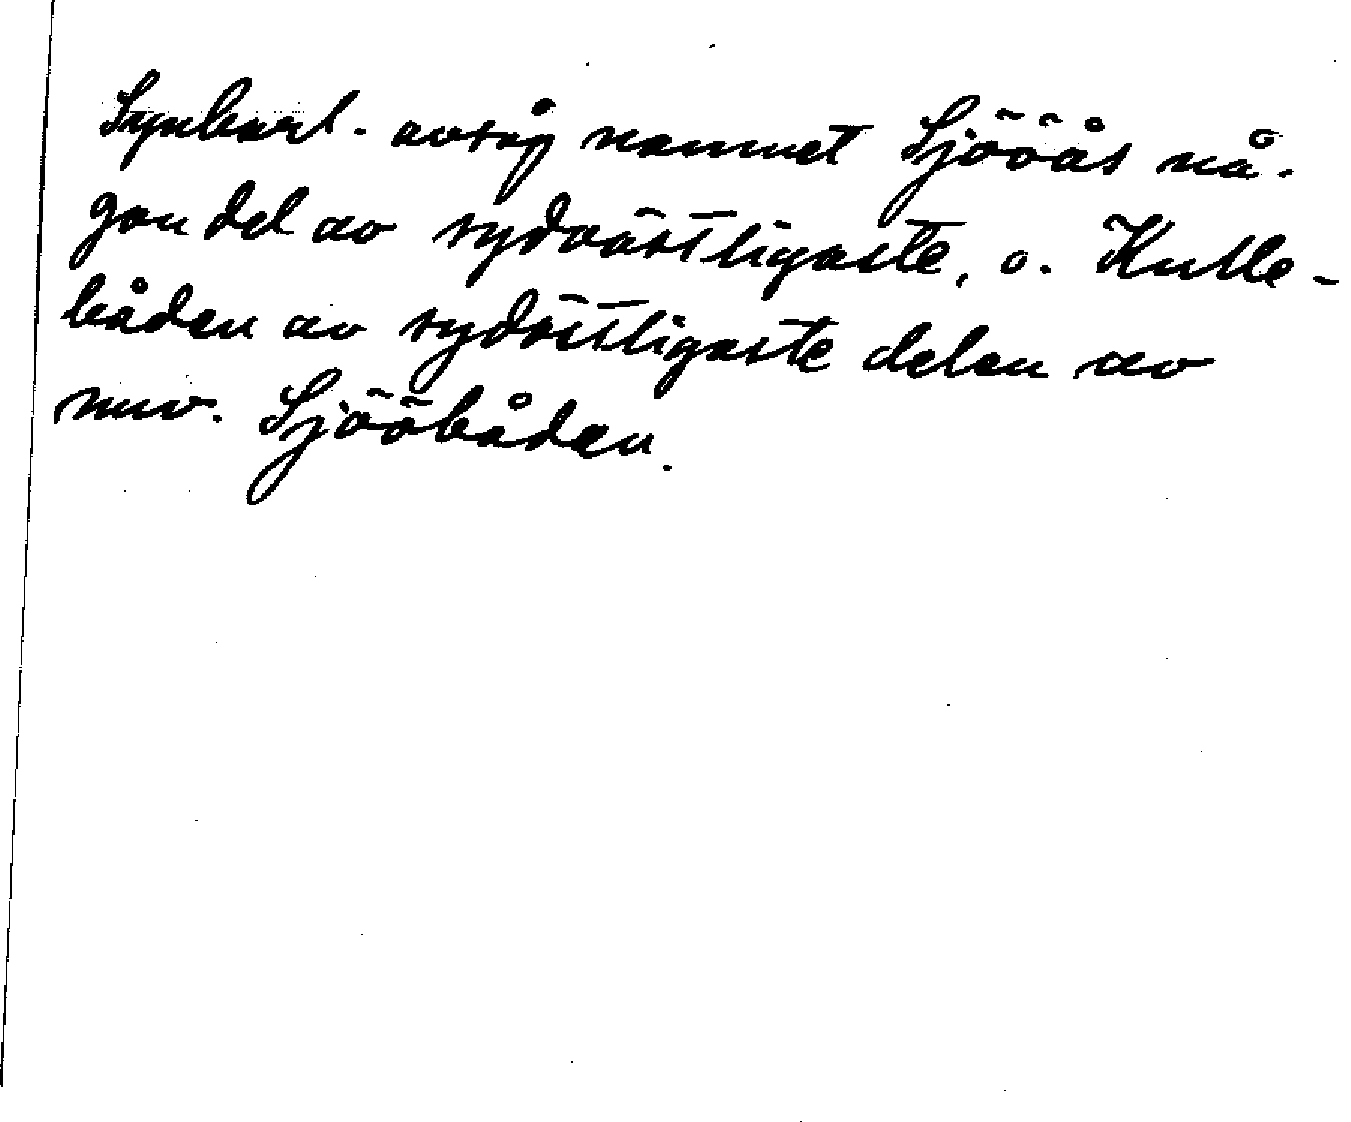 Synbarl. avsåg namnet Sjööås nå-
gon del av sydvästligaste, o. Kulle-
båden av sydöstligaste delen av
nuv. Sjööbåden.